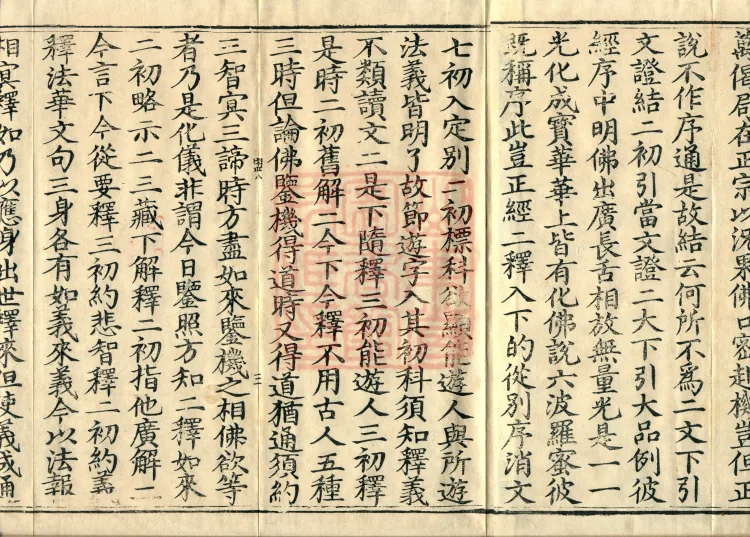 萬偈居在正宗以況果佛口密赴機豈但正
說不作序通是故結云何所不爲二文下引
文證結二初引當文證二大下引大品例彼
經序中明佛出廣長舌相放無量光是一一
光化成寶華華上皆有化佛說六波羅蜜彼
既稱序此豈正經二釋入下的從別序消文
七初入定別二初標科欲顯能遊人與所遊
法義皆明了故節遊字入其初科須知釋義
不類讀文二是下隨釋三初能遊人三初釋
是時二初舊解二今下今釋不用古人五種
三時但論佛鑒機得道時又得道猶通須約
三智冥三諦時方盡如來鑒機之相佛欲等
者乃是化儀非謂今日鑒照方知二釋如來
二初略示二三藏下解釋二初指他廣解二
今言下今從要釋三初約悲智釋二初約義
釋法華文句三身各有如義來義今以法報
相冥釋如乃以應身出世釋來但使義成通
三